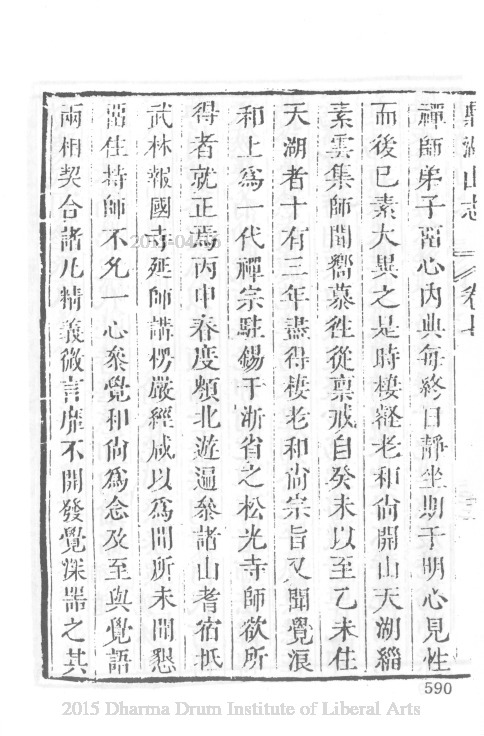 鼎湖山志 卷七
禪師弟子畱心内典每終日靜坐期于明心見性
而後已素大異之是時棲壑老和尚開山天湖緇
素雲集師聞嚮慕徃從禀戒自癸未以至乙未住
天湖者十有三年盡得棲老和尚宗旨又聞覺浪
和上爲一代禪宗駐錫于浙省之松光寺師欲所
得者就正焉丙申春度嶺北遊遍叅諸山耆宿抵
武林報國寺延師講楞嚴經咸以爲聞所未聞懇
畱住持師不允一心叅覺和尚爲念及至與覺語
兩相契合諸凡精義微言靡不開發覺深器之其
590
2015 Dharma Drum Institute of Liberal Arts